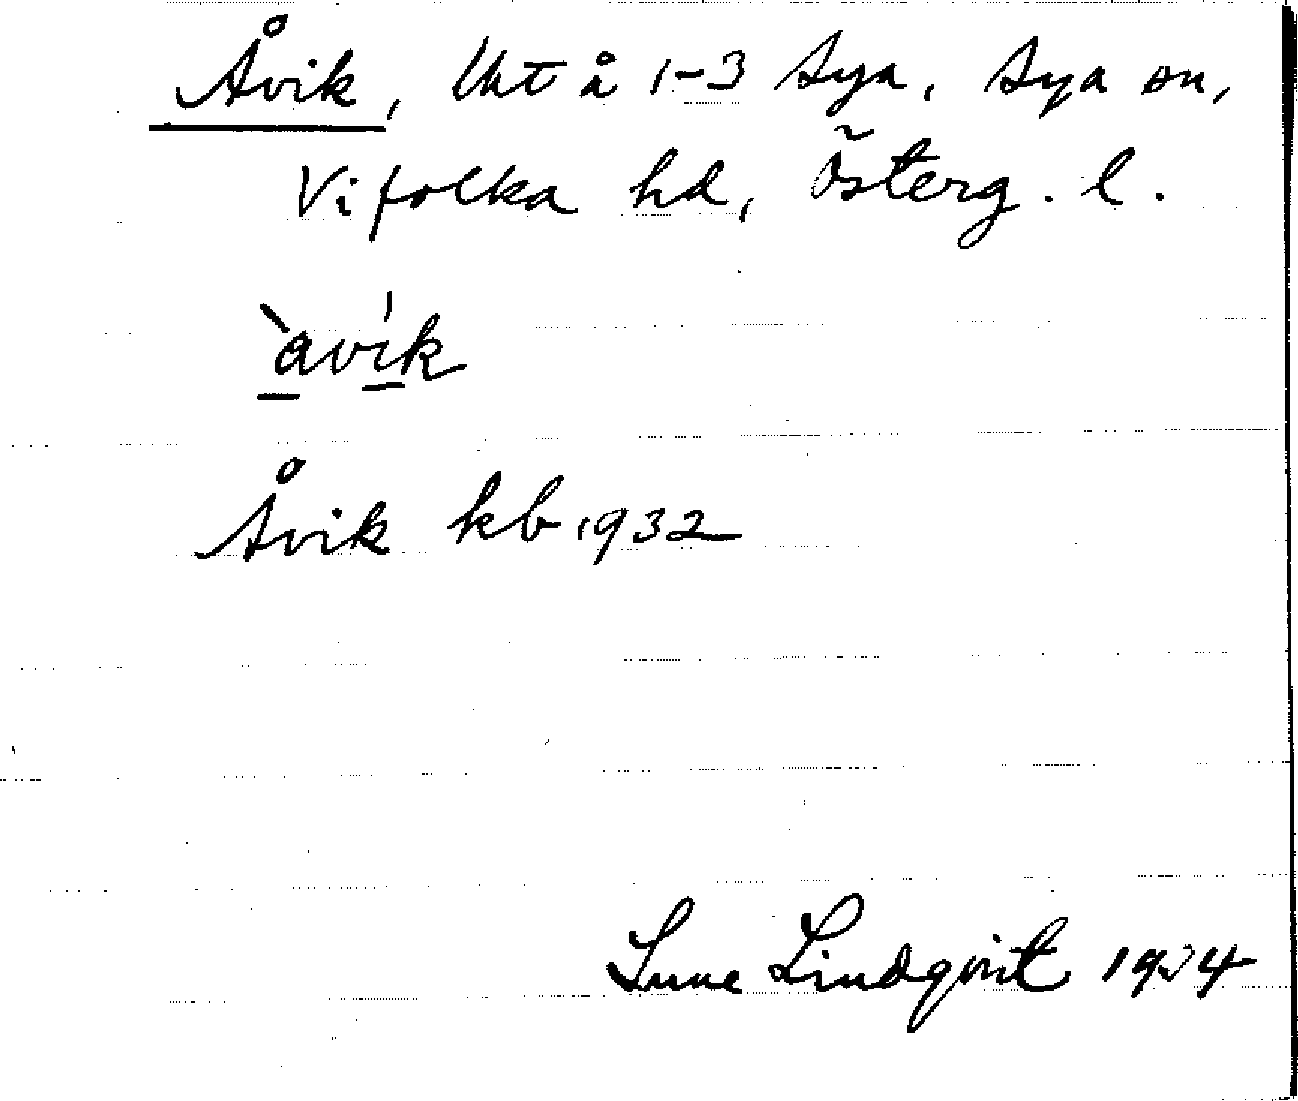 Åvik, Lht å 1-3 Sya, Sya sn,
Vifolka hd, Österg. l.
àvík
Åvik kb 1932
Sune Lindqvist 1934